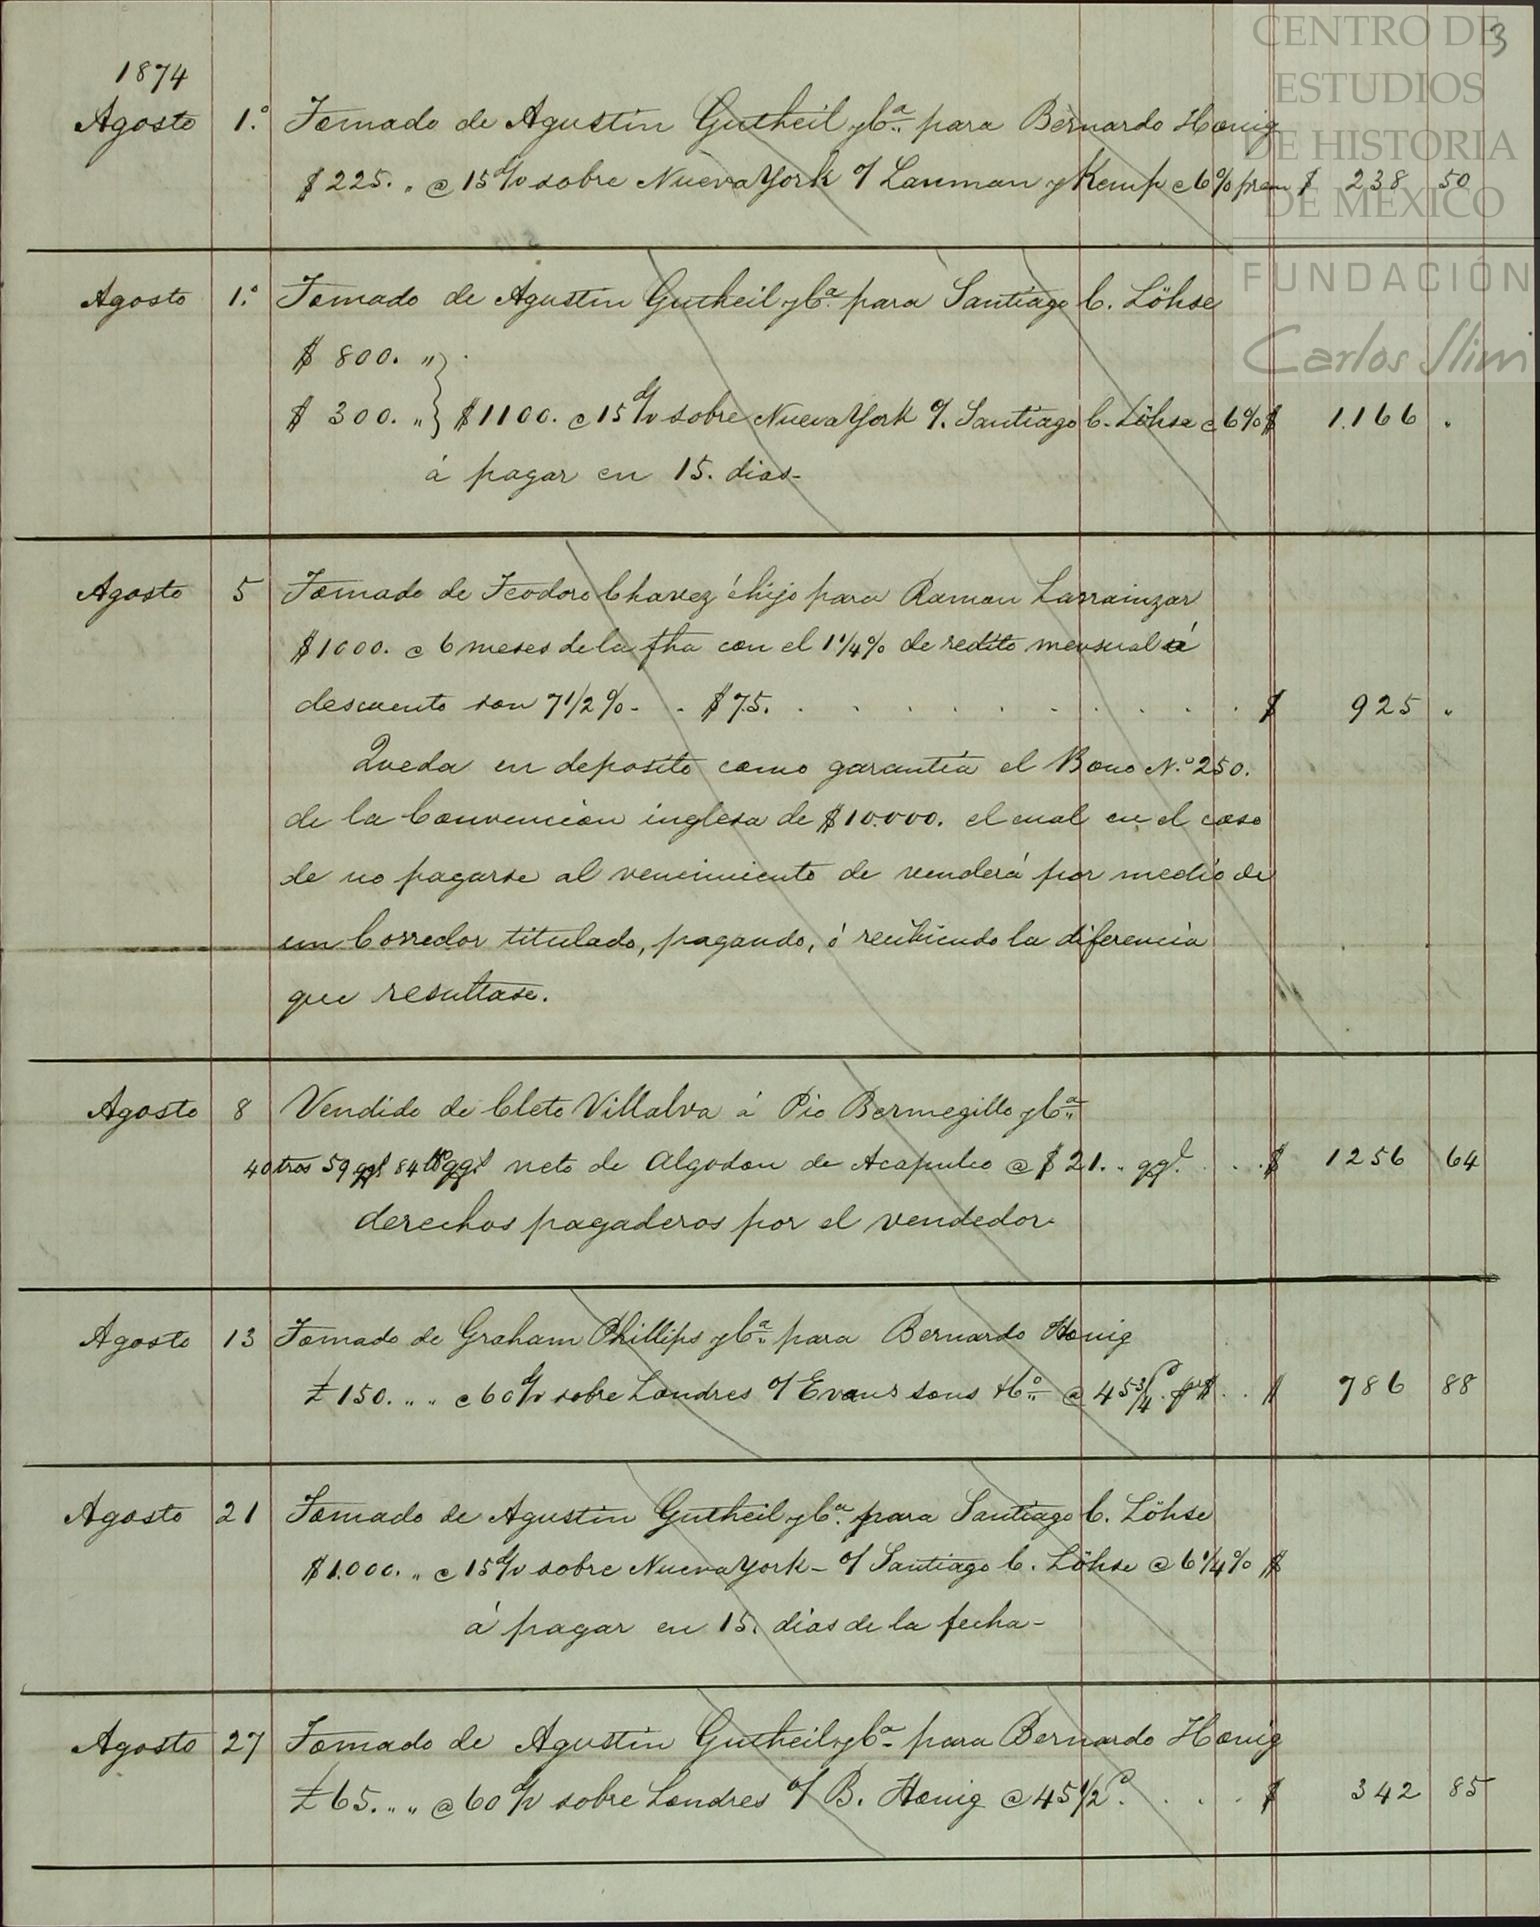 CENTRO DE
ESTUDIOS
DE HISTORIA
DE MÉXICO
FUNDACIÓN
Carlos Slim
3
1874
Agosto 1.º Tomado de Agustin Gutheil y Cª para Bernardo Hœnig
$225. " @ 15 d/v sobre Nueva York o/ Lanman y Kemp @ 6% prem $ 238 50
Agosto 1.º Tomado de Agustin Gutheil y Cª para Santiago C. Löhse
$ 800. "
$ 300. " } $1100. @ 15 d/v sobre Nueva York o/. Santiago C. Löhse @ 6% $ 1.166 "
á pagar en 15. dias-
Agosto 5 Tomado de Teodoro Chavez é hijo para Ramon Larrainzar
$1000. @ 6 meses de la fha con el 1 1/4% de redito mensual á
descuento son 7 1/2%- . $75. . . . . . . . . . . $ 925 "
Queda en deposito como garantía el Bono N.º 250.
de la Convencion inglesa de $10.000. el cual en el caso
de no pagarse al vencimiento de venderá por medio de
un Corredor titulado, pagando, ó recibiendo la diferencia
que resultase.
Agosto 8 Vendido de Cleto Villalva á Pio Bermegillo y Cª
40 tros 59 qql 84 lb neto de Algodon de Acapulco @ $21. " qql. . . $ 1256 64
derechos pagaderos por el vendedor.
Agosto 13 Tomado de Graham Phillips y Cª para Bernardo Hœnig
£150. " " @ 60 d/v sobre Londres o/ Evans sons & Cº @ 45 3/4 d. p $ . . $ 786 88
Agosto 21 Tomado de Agustin Gutheil y Cª para Santiago C. Löhse
$1.000. " @ 15 d/v sobre Nueva York- o/ Santiago C. Löhse @ 6 1/4% $
á pagar en 15. dias de la fecha-
Agosto 27 Tomado de Agustin Gutheil y Cª para Bernardo Hœnig
£65. " " @ 60 d/v sobre Londres o/ B. Hœnig @ 45 1/2 d. . . . $ 342 85